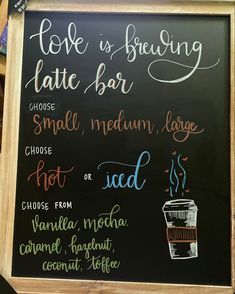 love is brewing
latte bar
CHOOSE
small, medium, large
CHOOSE
hot OR iced
CHOOSE FROM
vanilla, mocha.
caramel, hazelnut,
coconut, toffee